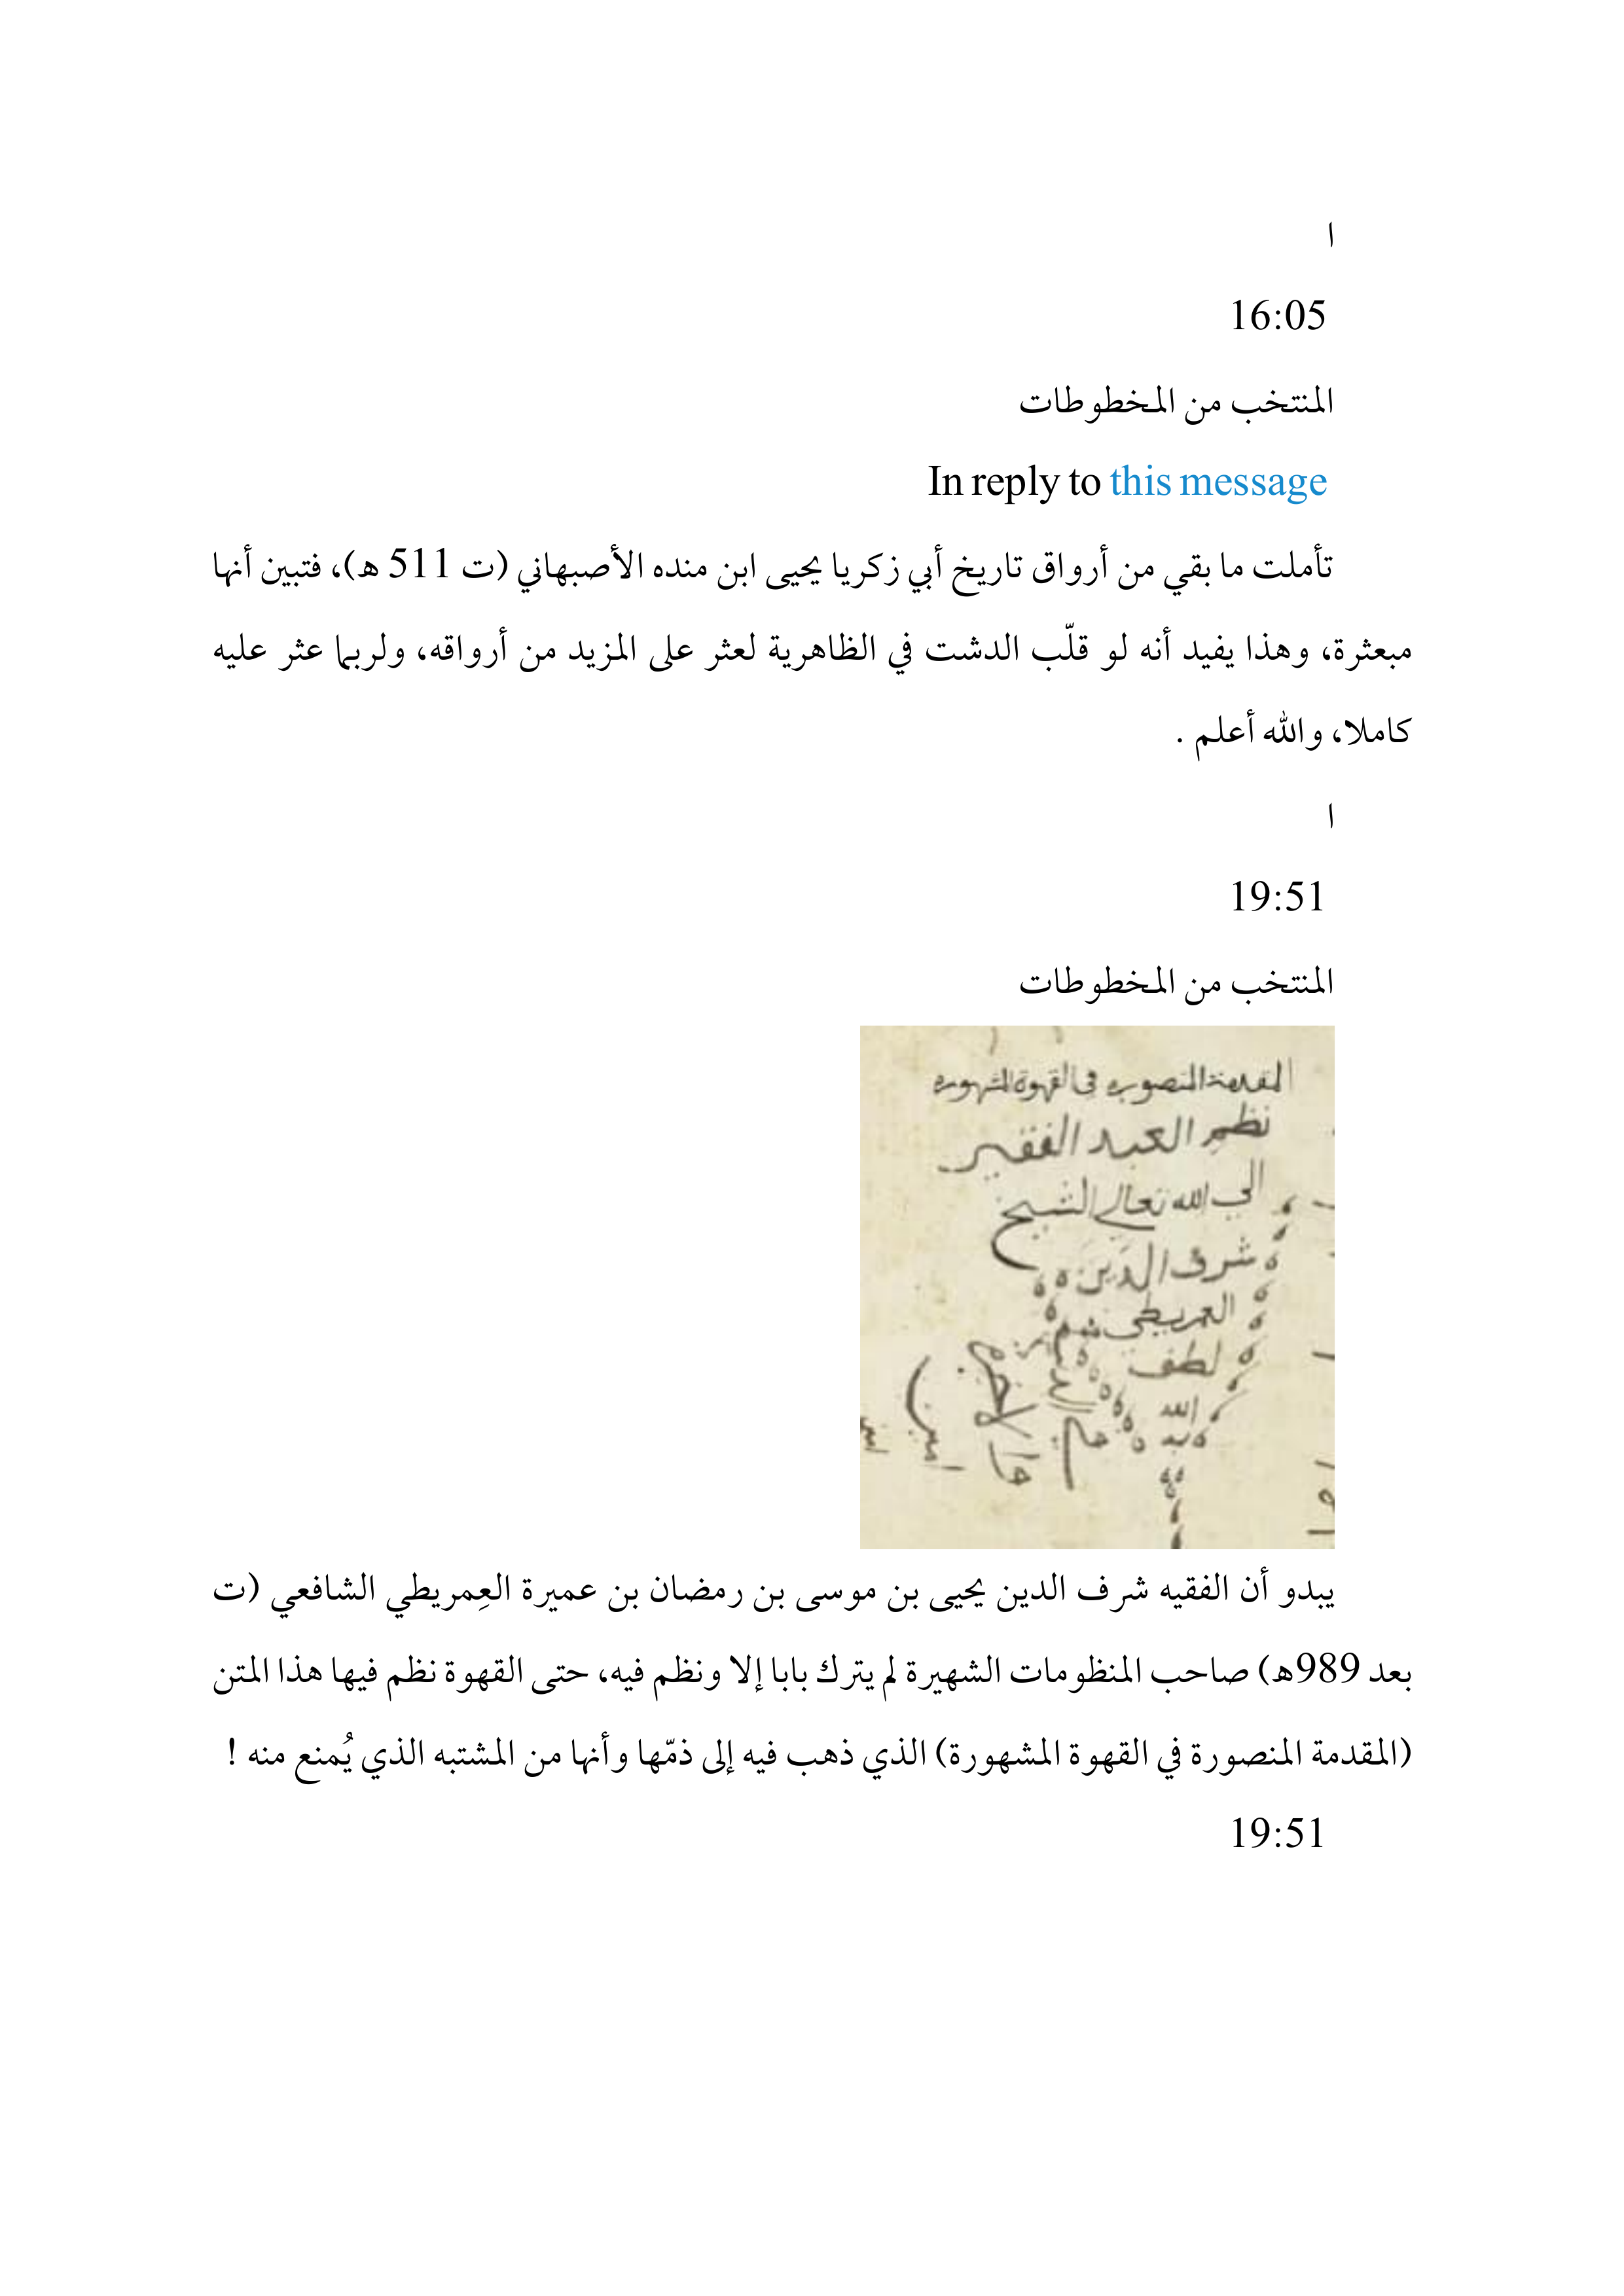 ا
16:05
المنتخب من المخطوطات
In reply to this message
تأملت ما بقي من أرواق تاريخ أبي زكريا يحيى ابن منده الأصبهاني (ت 511 ه)، فتبين أنها
مبعثرة، وهذا يفيد أنه لو قلّب الدشت في الظاهرية لعثر على المزيد من أرواقه، ولربما عثر عليه
كاملا، والله أعلم .
ا
19:51
المنتخب من المخطوطات
المقدمة المنصوره في القهوة المشهوره
نظم العبد الفقير
الي الله تعالي الشيخ
شرف الدين
العمريطي
لطف
الله
به
امين
يبدو أن الفقيه شرف الدين يحيى بن موسى بن رمضان بن عميرة العِمريطي الشافعي (ت
بعد 989ه) صاحب المنظومات الشهيرة لم يترك بابا إلا ونظم فيه، حتى القهوة نظم فيها هذا المتن
(المقدمة المنصورة في القهوة المشهورة) الذي ذهب فيه إلى ذمّها وأنها من المشتبه الذي يُمنع منه !
19:51